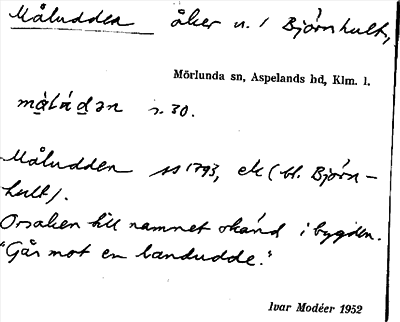 Måludden åker n. l Björnhult,
Mörlunda sn, Aspelands hd, Klm. l.
s. 30.
Måludden ss 1793, ek (bl. Björn-
hult).
Orsaken till namnet okänd i bygden.
"Går mot en landudde."
Ivar Modéer 1952